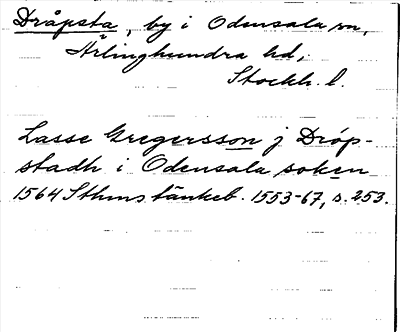 Dråpsta, by i Odensala sn,
Ärlinghundra hd,
Stockh. l.
Lasse Gregersson j Dröp-
stadh i Odensala soken
1564 Sthms tänkeb. 1553-67, s. 253.